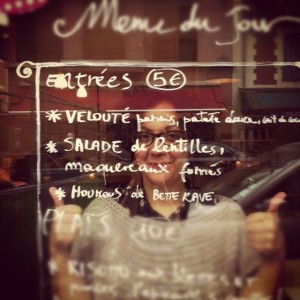 Menu du Jour
Entrées 5€
* VELOUTÉ panais, patate douce, lait de coco
* SALADE de lentilles,
maquereaux fumés
* HOUMOUS de BETTERAVE
PLATS 10€
* RISOTTO aux